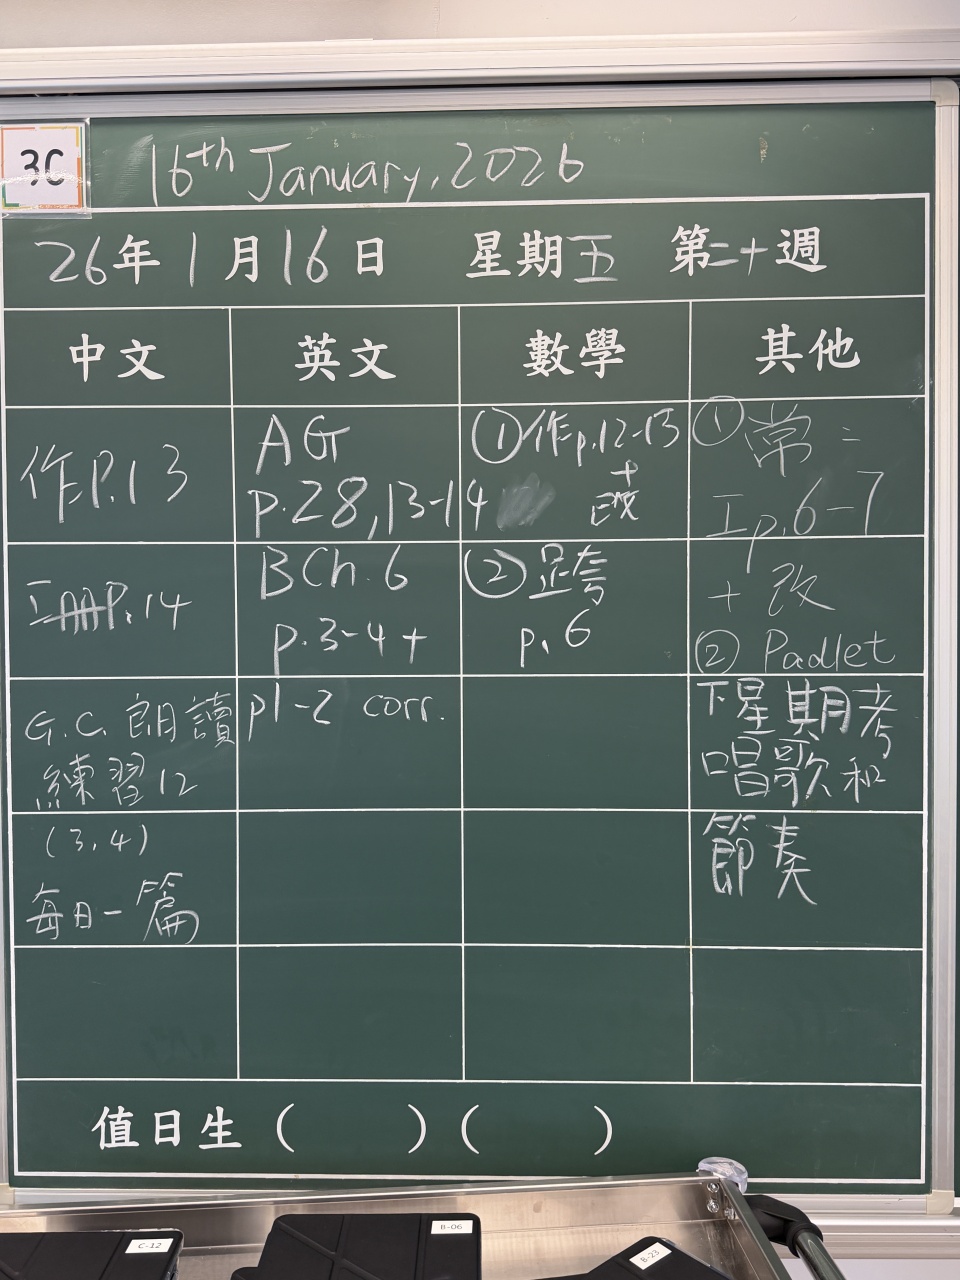 3C
16th January, 2026
26年1月16日 星期五 第二十週
中文 英文 數學 其他
作P.13
P.14
G.C. 朗讀
練習12
(3,4)
每日一篇
AG
p.28,13-14
B Ch.6
p.3-4+
p1-2 corr.
①作p.12-13
+
改
②
p.6
①常二
工p.6-7
+改
② Padlet
下星期考
唱歌和
節奏
值日生 ( ) ( )
C-12
B-06
B-23